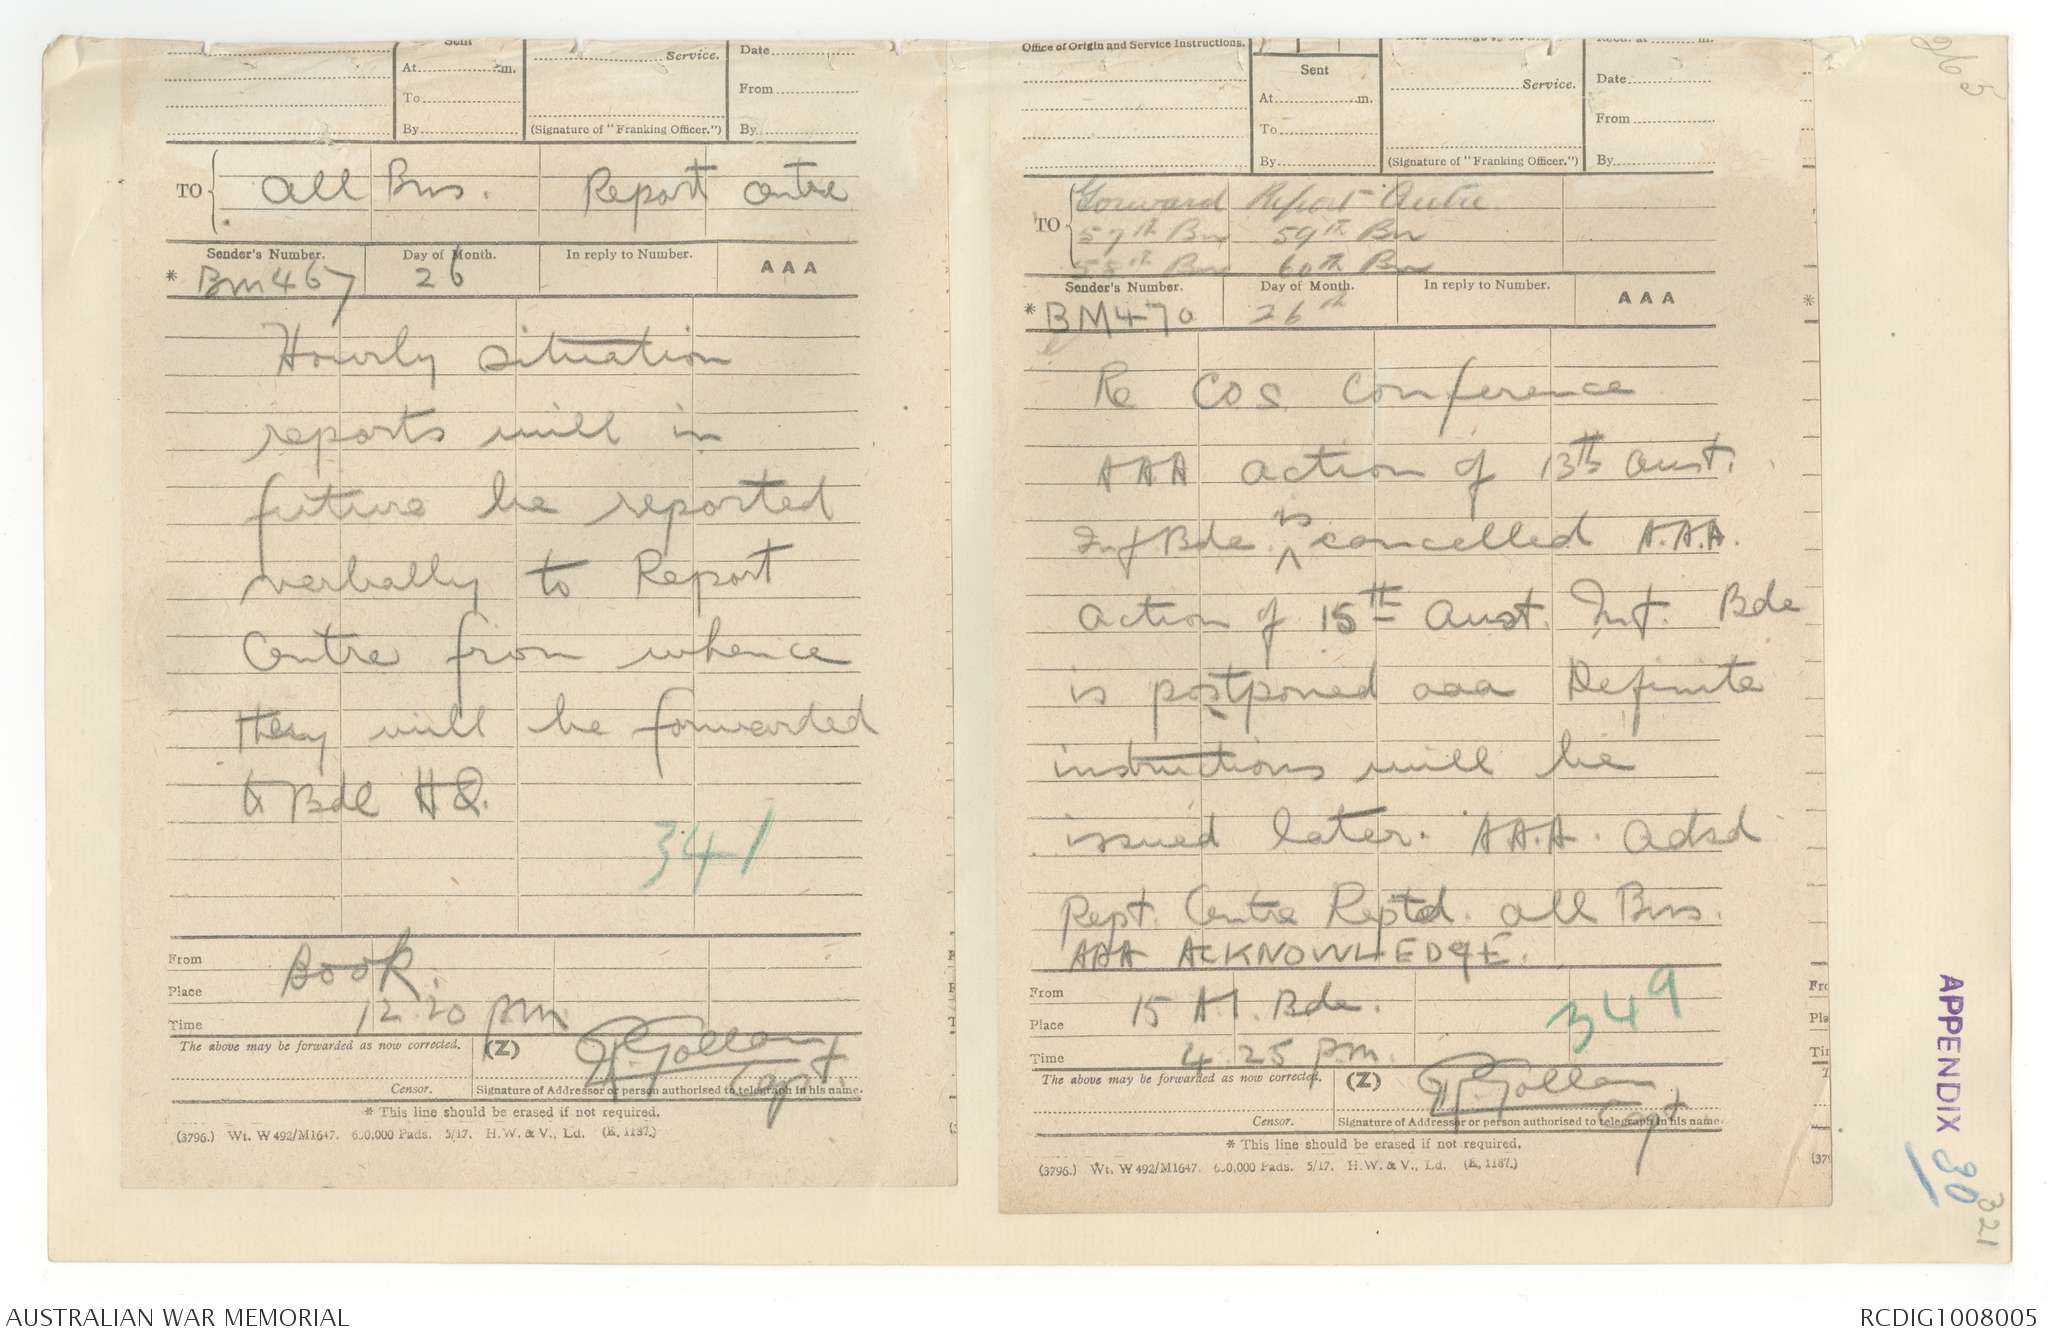 Sent
Service.
Date
At m.
From
To
By
(Signature of "Franking Officer.")
By
TO
All Bns. Report Centre
Sender's Number.
Day of Month.
In reply to Number.
AAA
* BM467
26
Hourly situation
reports will in
future be reported
verbally to Report
Centre from whence
they will be forwarded
to Bde HQ.
341
From
Book.
Place
Time
12.20 pm
The above may be forwarded as now corrected.
(Z)
Capt.
Censor.
Signature of Addressor or person authorised to telegraph in his name.
* This line should be erased if not required.
(3796.) Wt. W 492/M1647. 600,000 Pads. 5/17. H.W. & V., Ld. (E. 1187.)
Office of Origin and Service Instructions.
Sent
Service.
Date
At m.
From
To
By
(Signature of "Franking Officer.")
By
TO
Forward Report Centre
57th Bn 59th Bn
58th Bn 60th Bn
Sender's Number.
Day of Month.
In reply to Number.
AAA
* BM470
26th
Re COs Conference
AAA action of 13th Aust.
Inf. Bde is cancelled A.A.A.
action of 15th Aust. Inf. Bde
is postponed aaa Definite
instructions will be
issued later. AA.A. adsd
Rept. Centre Reptd. all Bns.
AAA ACKNOWLEDGE.
From
15 A.I. Bde.
349
Place
Time
4.25 p.m.
The above may be forwarded as now corrected.
(Z)
Capt
Censor.
Signature of Addressor or person authorised to telegraph in his name.
* This line should be erased if not required.
(3796.) Wt. W 492/M1647. 600,000 Pads. 5/17. H.W. & V., Ld. (E. 1187.)
APPENDIX 30
321
AUSTRALIAN WAR MEMORIAL
RCDIG1008005